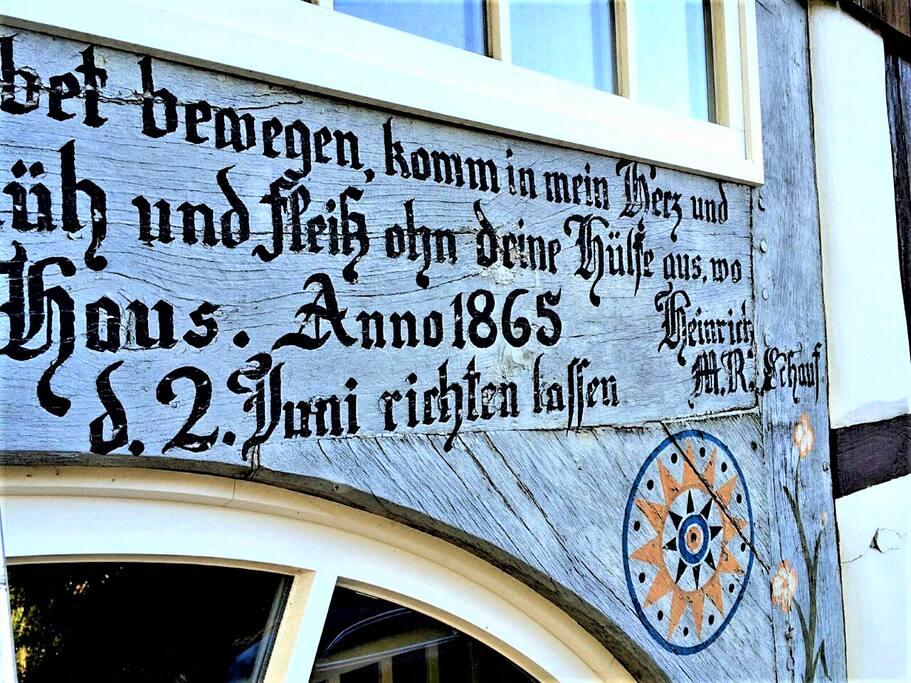 bet bewegen, komm in mein Herz und
üh und fleiß ohn deine Hülfe aus, wo
Haus. Anno 1865 Heinrich
d. 2. Juni richten lassen M.R.